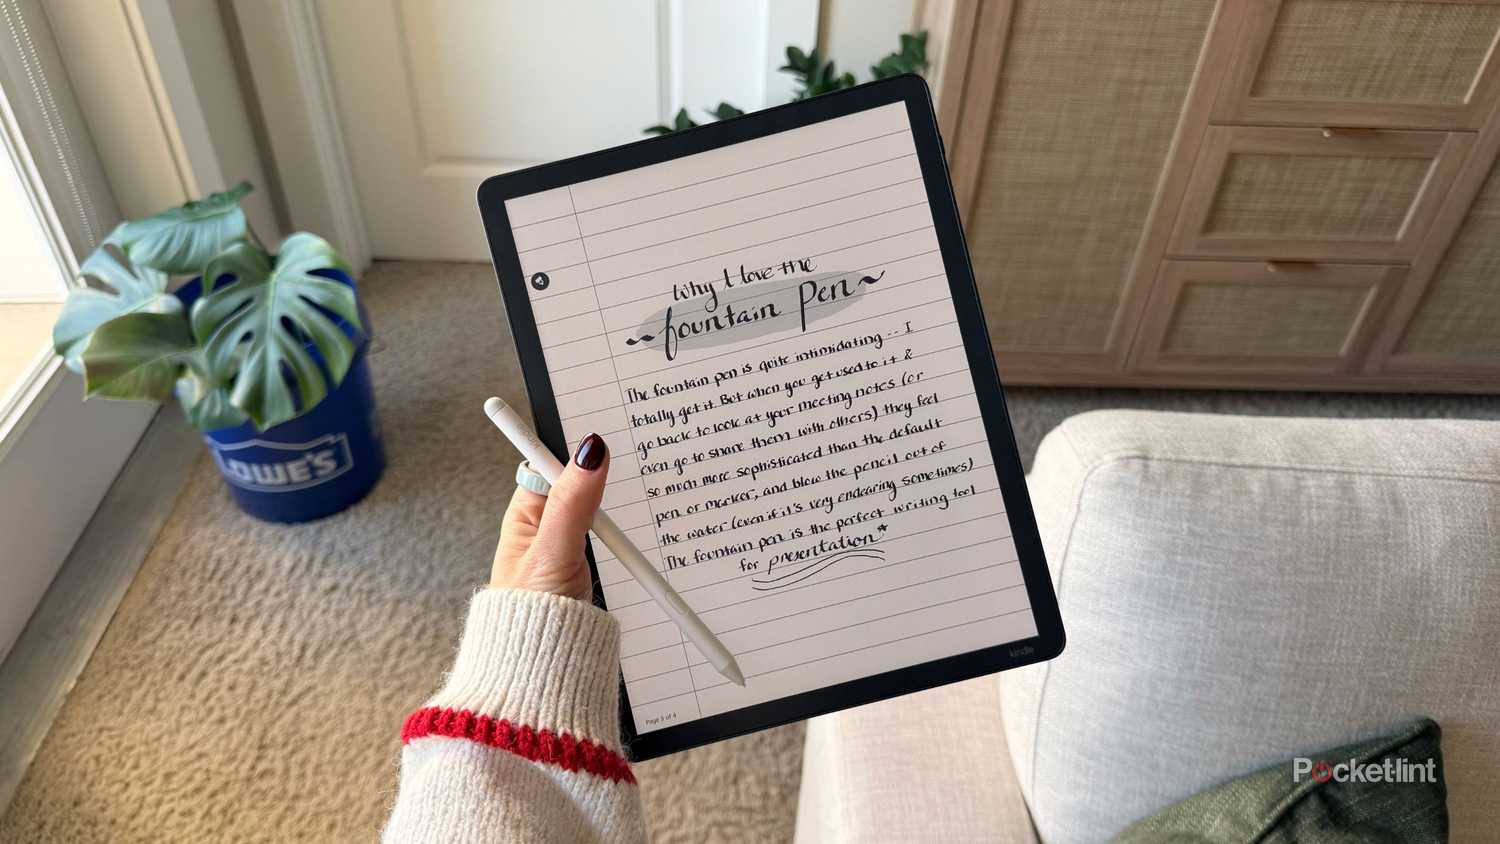 Why I love the
~fountain Pen~
The fountain pen is quite intimidating -- I
totally get it. But when you get used to it &
go back to look at your meeting notes (or
even go to share them with others) they feel
so much more sophisticated than the default
pen or marker, and blow the pencil out of
the water (even if it's very endearing sometimes)
The fountain pen is the perfect writing tool
for presentation*
Page 3 of 4
kindle
LOWE'S
Pocketlint